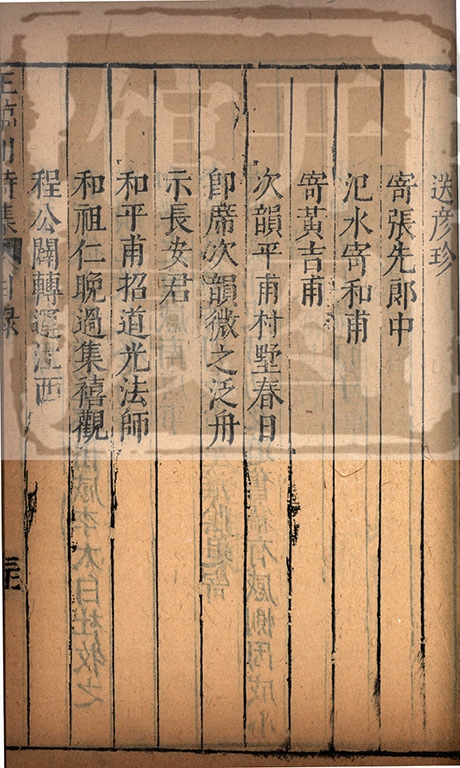 送彥珍
寄張先郎中
氾水寄和甫
寄黃吉甫
次韻平甫村墅春日
卽席次韻微之泛舟
示長安君
和平甫招道光法師
和祖仁晚過集禧觀
程公闢轉運江西
王臨川詩集 目錄